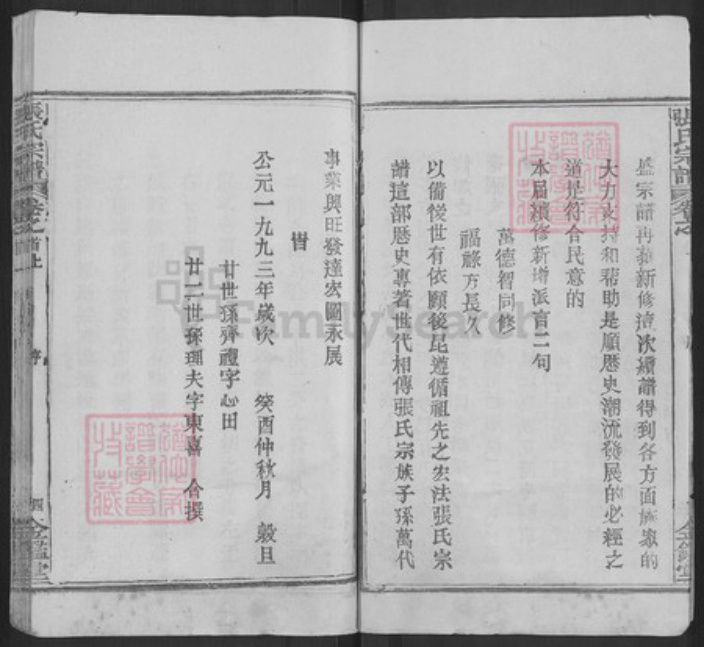 盛宗譜再葊新修這次續譜得到各方面族衆的
大力支持和帮助是順歷史潮流發展的必經之
道是符合民意的
本屆續修新增派言二句
萬德智同修
福祿方長久
以備後世有依願後昆遵循祖先之宏法張氏宗
譜這部歷史專著世代相傳張氏宗族子孫萬代
事業興旺發達宏圖永展
旹
公元一九九三年歲次 癸酉仲秋月 穀旦
廿世孫齊禮字心田
廿二世孫理夫字東嘉 合撰
張氏宗譜
卷之首上
序
四
張氏宗譜
FamilySearch